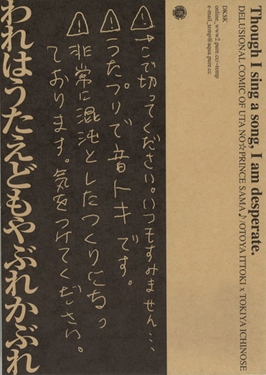 Though I sing a song, I am desperate.
DELUSIONAL COMIC OF UTA NO☆PRINCE SAMA♪/OTOYA ITTOKI x TOKIYA ICHINOSE
DKSK
⚠→こで切ってください。いつもすみません…
⚠うたプリで音トキです。
⚠非常に混沌としたつくりになっ
ております。気をつけてください。
われはうたえどもやぶれかぶれ